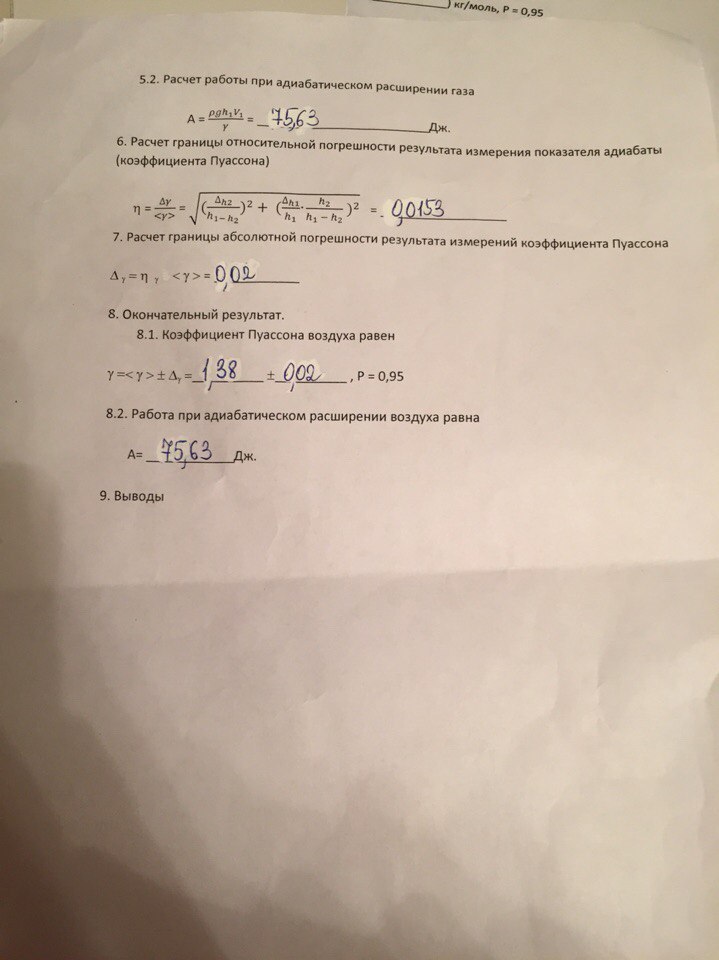 ) кг/моль, P = 0,95
5.2. Расчет работы при адиабатическом расширении газа
A = ρgh₁V₁/γ = 75,63 Дж.
6. Расчет границы относительной погрешности результата измерения показателя адиабаты
(коэффициента Пуассона)
η = Δγ/<γ> = √((Δh2/(h₁−h₂))² + (Δh1/h₁ · h₂/(h₁−h₂))²) = 0,0153
7. Расчет границы абсолютной погрешности результата измерений коэффициента Пуассона
Δ γ = η γ <γ> = 0,02
8. Окончательный результат.
8.1. Коэффициент Пуассона воздуха равен
γ =<γ> ± Δγ = 1,38 ± 0,02 , P = 0,95
8.2. Работа при адиабатическом расширении воздуха равна
A= 75,63 Дж.
9. Выводы